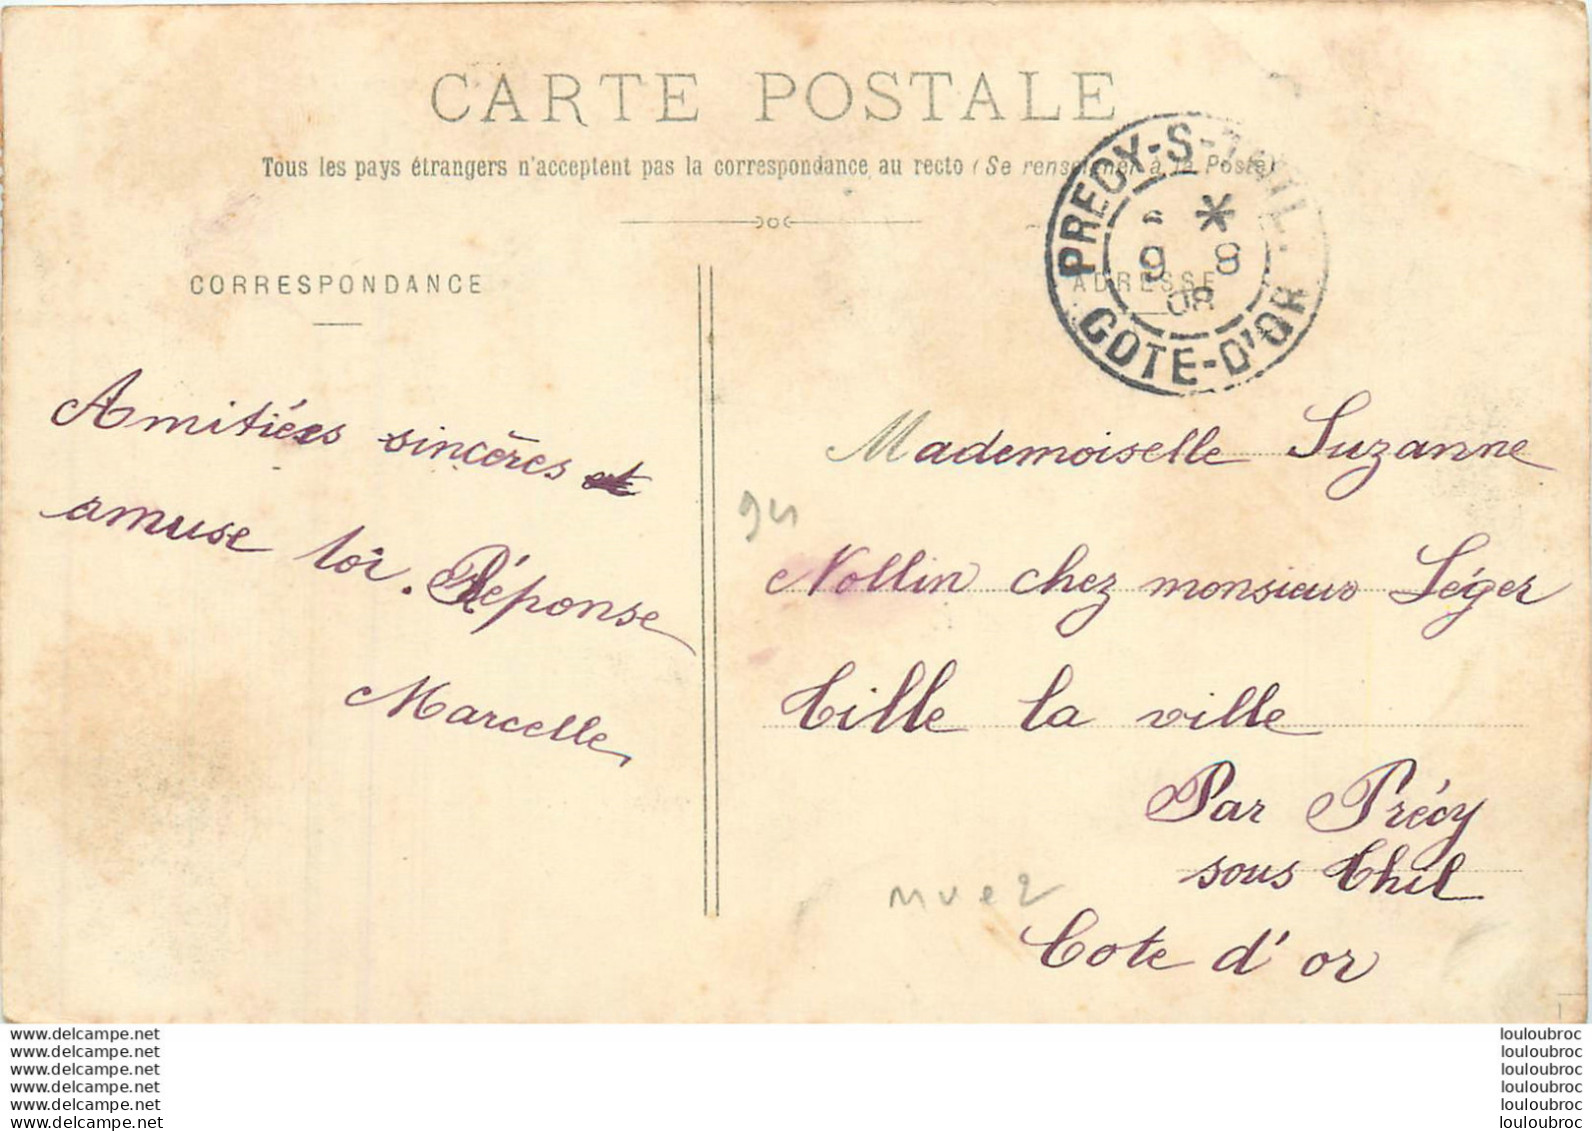 CARTE POSTALE
Tous les pays étrangers n'acceptent pas la correspondance au recto (Se renseigner à la Poste)
CORRESPONDANCE
Amitiés sincères et
amuse toi. Réponse
Marcelle
PRECY-S-THIL.
9 8
08
COTE-D'OR
ADRESSE
Mademoiselle Suzanne
Nollin chez monsieur Léger
Tille la ville
Par Précy
sous Thil
Cote d'or
94
www.delcampe.net
www.delcampe.net
www.delcampe.net
www.delcampe.net
www.delcampe.net
www.delcampe.net
louloubroc
louloubroc
louloubroc
louloubroc
louloubroc
louloubroc